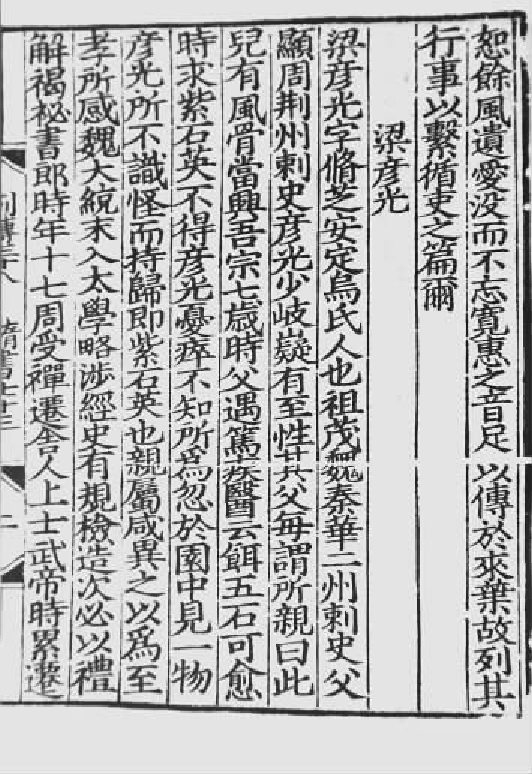 恕餘風遺愛没而不忘寬惠之音足以傳於來葉故列其
行事以繫循吏之篇爾
梁彦光
梁彦光字脩芝安定烏氏人也祖茂魏秦華二州刺史父
顯周荆州刺史彦光少岐嶷有至性其父每謂所親曰此
兒有風骨當興吾宗七歲時父遇篤疾醫云餌五石可愈
時求紫石英不得彦光憂瘁不知所爲忽於園中見一物
彦光所不識怪而持歸即紫石英也親屬咸異之以爲至
孝所感魏大統末入太學略涉經史有規檢造次必以禮
解褐祕書郎時年十七周受禪遷舍人上士武帝時累遷